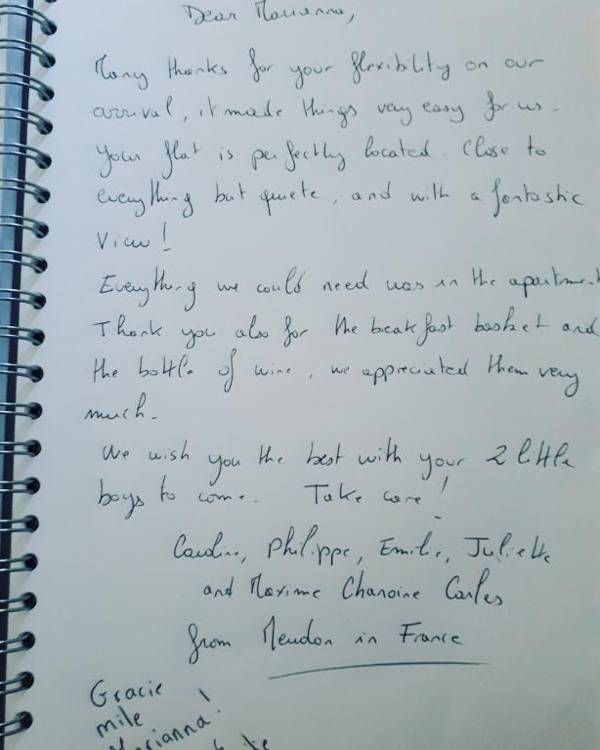 Dear Marianna,
Many thanks for your flexibility on our
arrival, it made things very easy for us.
Your flat is perfectly located. Close to
everything but quiete, and with a fantastic
View!
Everything we could need was in the apartment
Thank you also for the breakfast basket and
the bottle of wine, we appreciated them very
much.
We wish you the best with your 2 little
boys to come. Take care!
Caroline, Philippe, Emilie, Juliette
and Maxime Chanoine Carles
from Meudon in France
Gracie
mile
Marianna!